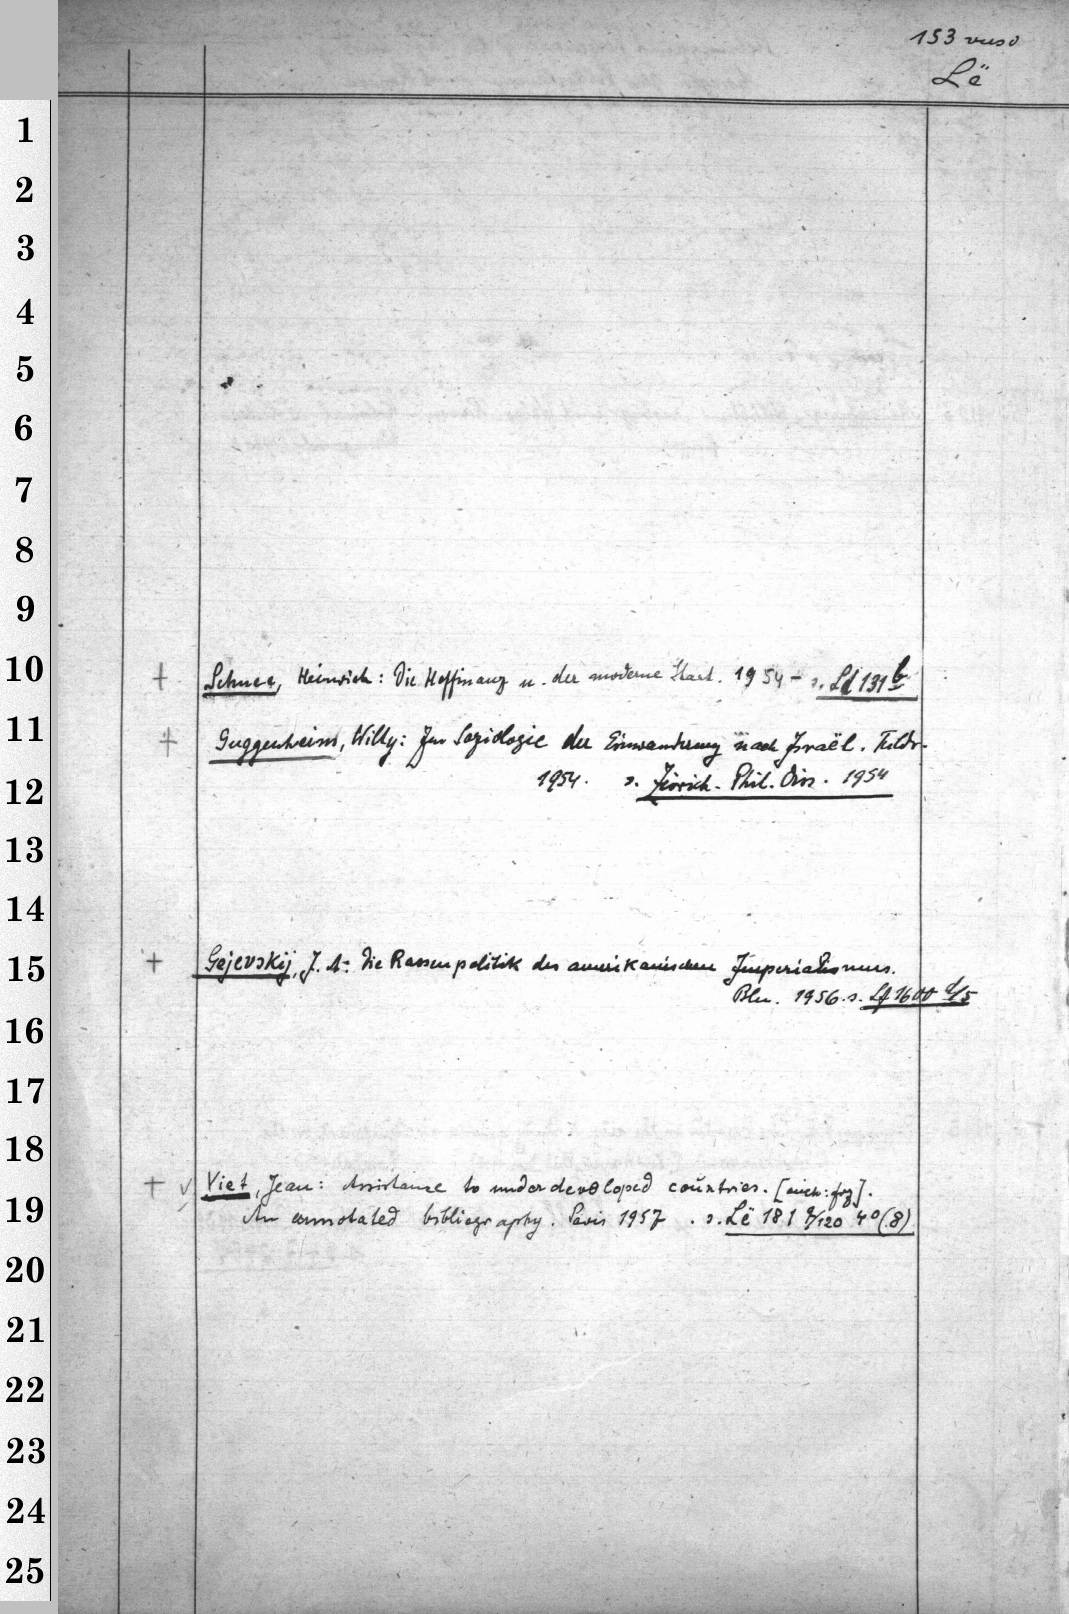 153 verso
Lë
1
2
3
4
5
6
7
8
9
10
+ Schnee, Heinrich: Die Hoffinanz u. der moderne Staat. 1954 - s. Ld 131 b
11
+ Guggenheim, Willy: Zur Soziologie der Einwanderung nach Israël.
12
1954. s. Zürich. Phil. Diss. 1954
13
14
15
+ Gejevskij, J. A.: Die Rassenpolitik des amerikanischen Imperialismus.
Bln. 1956. s. Lf 1600 d/5
16
17
18
+ v Viet, Jean: Assistance to under developed countries. [auch: frz].
19
An annotated bibliography. Paris 1957. s. Lë 181 q/120 4°(8)
20
21
22
23
24
25